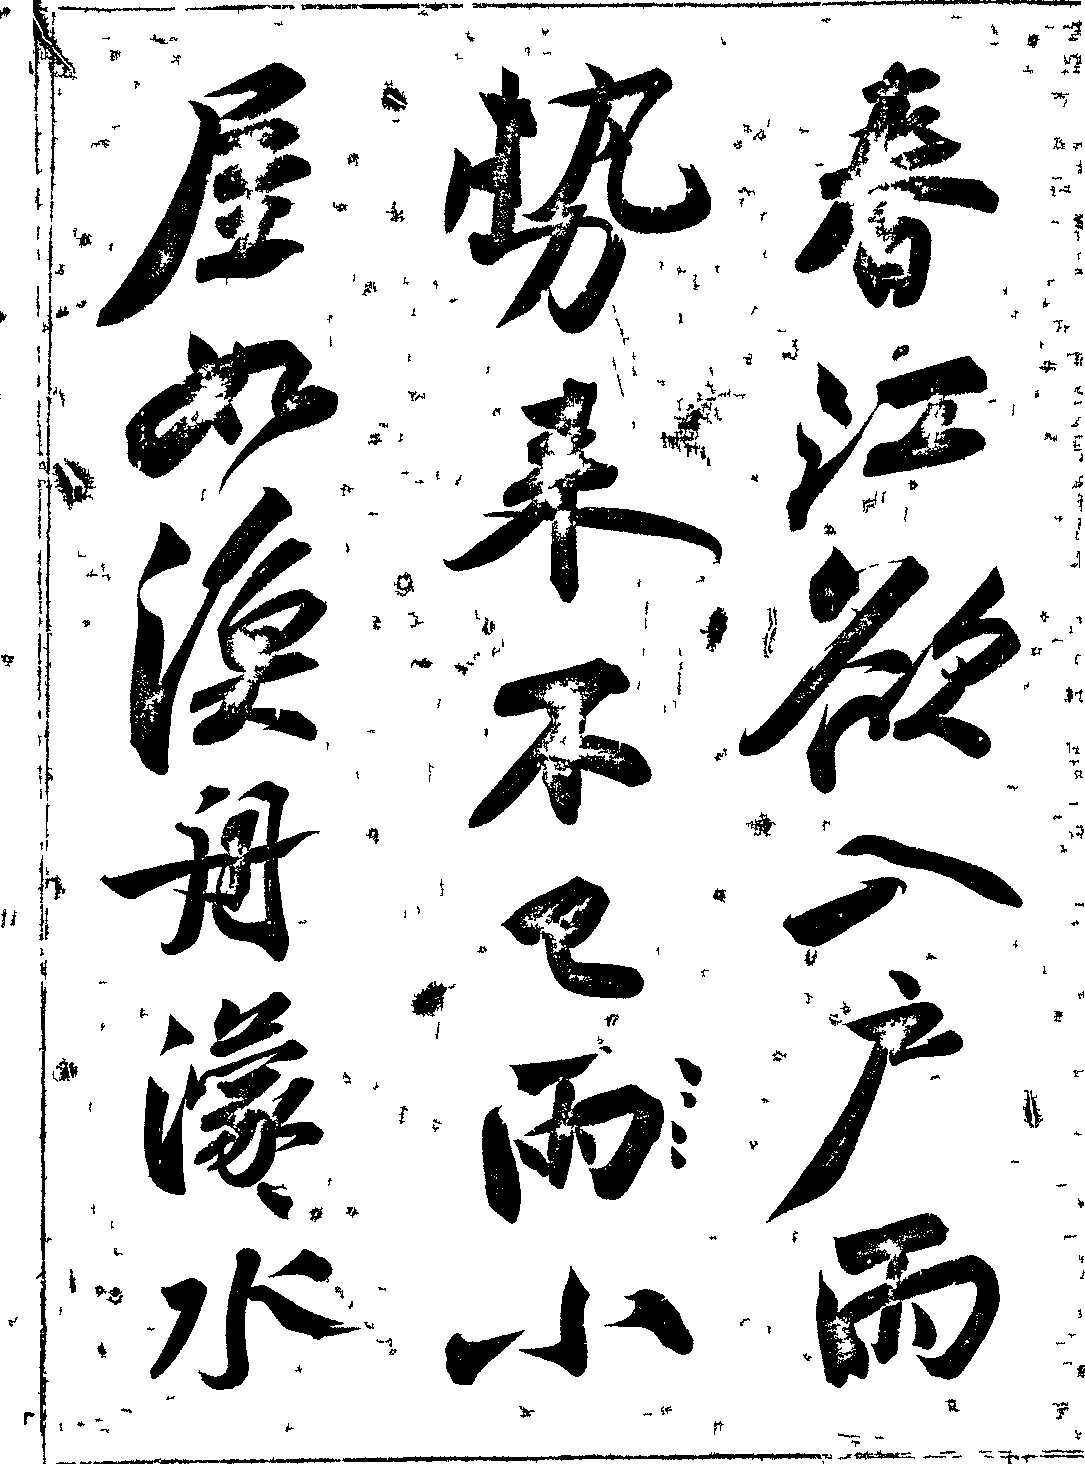 春江欲入戶雨
勢来不已雨小
屋如漁舟濛〻水